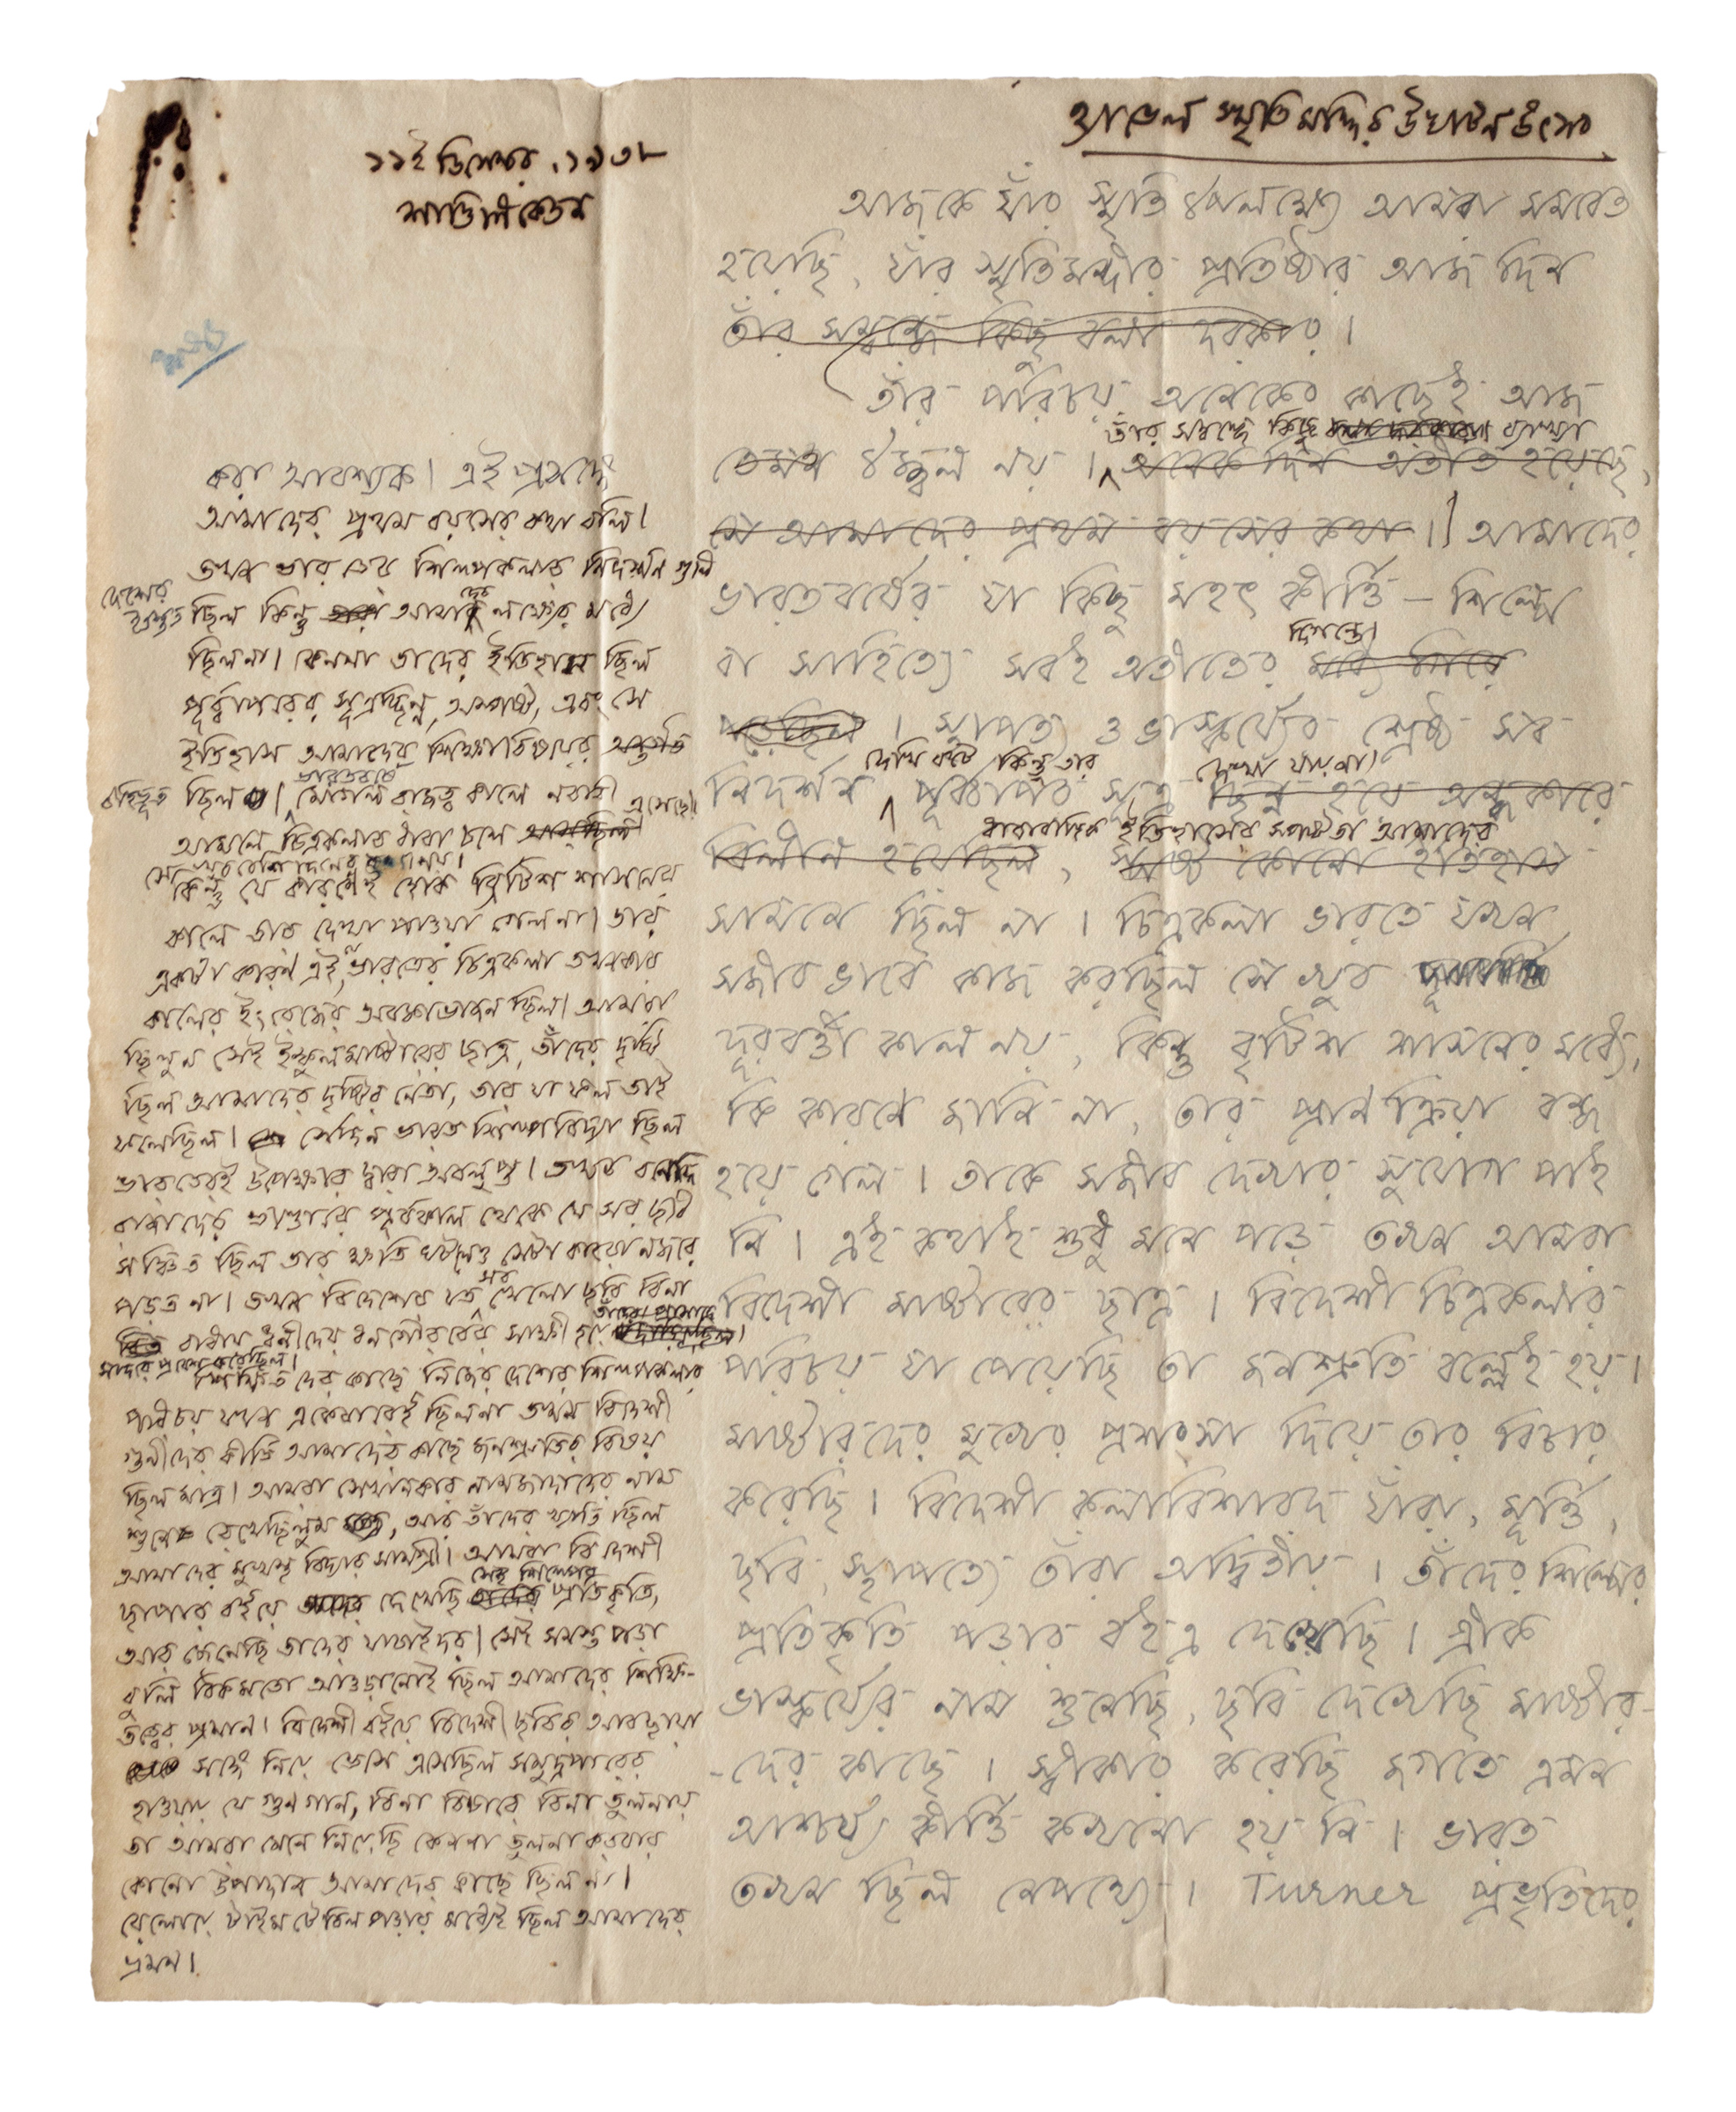 হ্যাভেল স্মৃতিমন্দির উদ্ঘাটন উৎসব
১১ই ডিসেম্বর, ১৯৩৮
শান্তিনিকেতন
আজকে যাঁর স্মৃতি উপলক্ষ্যে আমরা সমবেত
হয়েছি, যাঁর স্মৃতিমন্দির প্রতিষ্ঠার আজ দিন
তাঁর সম্বন্ধে কিছু বলা দরকার।
তাঁর পরিচয় অনেকের কাছেই আজ
তাঁর সম্বন্ধে কিছু ব্যাখ্যা
তেমন উজ্জ্বল নয়। অনেক দিন অতীত হয়েছে,
সে আমাদের প্রথম বয়সের কথা। আমাদের
ভারতবর্ষের যা কিছু মহৎ কীর্ত্তি – শিল্পে
দিগন্তে।
বা সাহিত্যে সবই অতীতের মধ্যে
। স্থাপত্য ও ভাস্কর্য্যের শ্রেষ্ঠ সব
দেখি বটে কিন্তু তার দেখা যায় না।
নিদর্শন পূর্ব্বাপর সূত্র ছিন্ন হয়ে অন্ধকারে
ধারাবাহিক ইতিহাসের স্পষ্টতা আমাদের
বিলীন হয়েছিল, স্পষ্ট কোনো ইতিহাস
সামনে ছিল না। চিত্রকলা ভারতে যখন
সজীব ভাবে কাজ করছিল সে খুব
দূরবর্ত্তী কাল নয়, কিন্তু বৃটিশ শাসনের মধ্যে,
কি কারণে জানি না, তার প্রাণক্রিয়া বন্ধ
হয়ে গেল। তাকে সজীব দেখার সুযোগ পাই
নি। এই কথাই শুধু মনে পড়ে তখন আমরা
বিদেশী মাষ্টারের ছাত্র। বিদেশী চিত্রকলার
পরিচয় যা পেয়েছি তা জনশ্রুতি বল্লেই হয়।
মাষ্টারদের মুখের প্রশংসা দিয়ে তার বিচার
করেছি। বিদেশী কলাবিশারদ যাঁরা, মূর্ত্তি,
ছবি, স্থাপত্যে তাঁরা অদ্বিতীয়। তাঁদের শিল্পের
প্রতিকৃতি পড়ার বইএ দেখেছি। গ্রীক
ভাস্কর্য্যের নাম শুনেছি, ছবি দেখেছি মাষ্টার-
-দের কাছে। স্বীকার করেছি জগতে এমন
আশ্চর্য্য কীর্ত্তি কখনো হয় নি। ভারত
তখন ছিল নেপথ্যে। Turner প্রভৃতিদের
করা আবশ্যক। এই প্রসঙ্গে
আমাদের প্রথম বয়সের কথা বলি।
তখন ভারতীয় শিল্পকলার নিদর্শন গুলি
দেশের
ছিল কিন্তু আমাদের লক্ষ্যের মধ্যে
ছিলনা। কেননা তাদের ইতিহাস ছিল
পূর্ব্বাপরের সূত্রচ্ছিন্ন, অস্পষ্ট, এবং সে
ইতিহাস আমাদের শিক্ষাবিষয়ের অন্তর্গত
ভারতবর্ষে
বহির্ভূত ছিল। মোগল রাজত্ব কালে নবাবী
এসেছে।
আমলে চিত্রকলার ধারা চলে
সে খুব বেশি দিনের কথা নয়।
কিন্তু যে কারণেই হোক ব্রিটিশ শাসনের
কালে তার দেখা পাওয়া গেল না। তার
একটা কারণ এই, ভারতের চিত্রকলা তখনকার
কালের ইংরেজের অবজ্ঞাভাজন ছিল। আমরা
ছিলুম সেই ইস্কুলমাষ্টারের ছাত্র, তাঁদের দৃষ্টি
ছিল আমাদের দৃষ্টির নেতা, তার যা ফল তাই
ফলেছিল। সেদিন ভারত শিল্পবিদ্যা ছিল
ভারতেরই উপেক্ষার দ্বারা অবলুপ্ত। তখন বনেদি
রাজাদের ভাণ্ডারে পূর্বকাল থেকে যে সব ছবি
সঞ্চিত ছিল তার ক্ষতি ঘটলেও সেটা কারো নজরে
সব
পড়ত না। তখন বিদেশের যত খেলো ছবি বিনা
তাদের প্রাসাদে
ধনীদের ধনগৌরবের সাক্ষী হয়ে
সাদরে প্রবেশ করেছিল।
শিক্ষিতদের কাছে নিজের দেশের শিল্পকলার
পরিচয় যখন একেবারেই ছিলনা তখন বিদেশী
গুণীদের কীর্ত্তি আমাদের কাছে জনশ্রুতির বিষয়
ছিল মাত্র। আমরা সেখানকার নামজাদাদের নাম
শুনে রেখেছিলুম, আর তাঁদের খ্যাতি ছিল
আমাদের মুখস্থ বিদ্যার সামগ্রী। আমরা বিদেশী
সেই শিল্পের
ছাপার বইয়ে দেখেছি প্রতিকৃতি,
আর জেনেছি তাদের যাচাই দর। সেই সমস্ত পড়া
বুলি ঠিকমতো আওড়ানোই ছিল আমাদের শিক্ষি-
তত্বের প্রমাণ। বিদেশী বইয়ে বিদেশী ছবির আবছায়া
সঙ্গে নিয়ে ভেসে এসেছিল সমুদ্রপারের
হাওয়ায় যে গুণগান, বিনা বিচারে বিনা তুলনায়
তা আমরা মেনে নিয়েছি কেননা তুলনা করবার
কোনো উপাদান আমাদের কাছে ছিল না।
রেলোয়ে টাইমটেবিল পড়ার মধ্যেই ছিল আমাদের
ভ্রমণ।